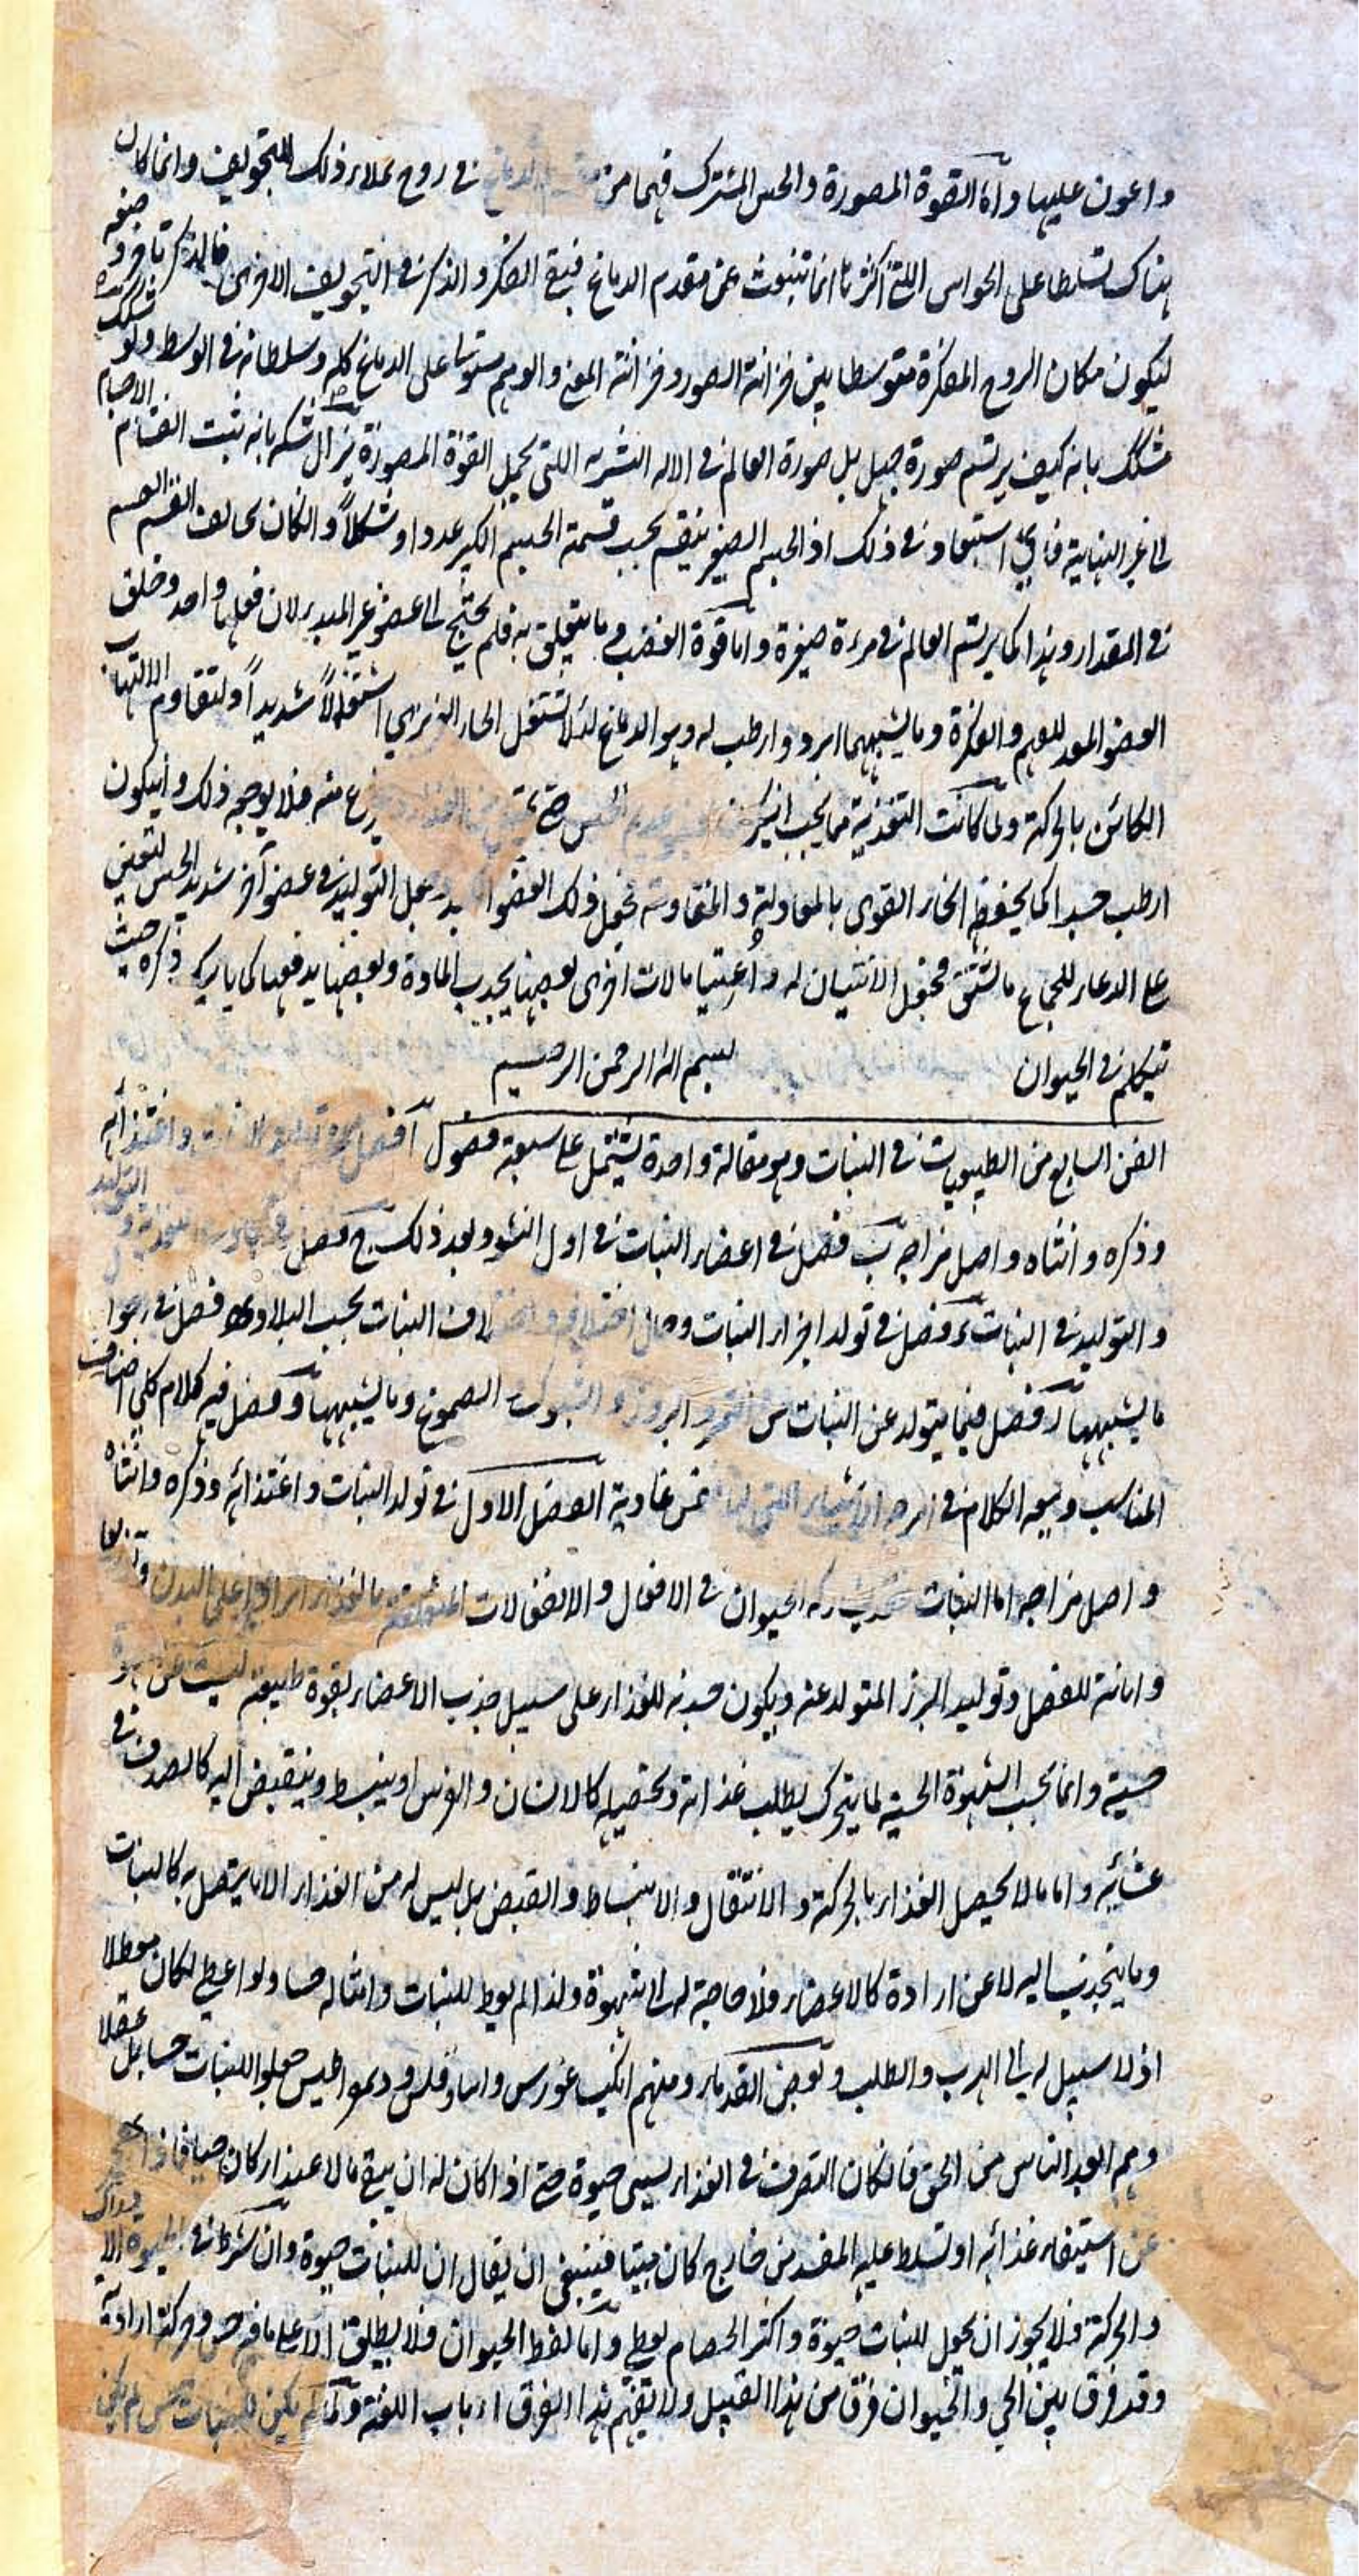 واعون عليها واما القوة المصورة والحس المشترك فهما من مقدم الدماغ في روح تملاء ذلك التجويف وانما كان
هناك تسلطا على الحواس اللتي اكثرها انما تنبعث عن مقدم الدماغ فبقي الفكر والذكر في التجويفين الاخرى فالذكر تاخر موضعه
ليكون مكان الروح المفكرة متوسطا بين خزانة الصور وخزانة المعنى والوهم مستوليا على الدماغ كله وسلطانه في الوسط ولو تشكك
متشكك بانه كيف يرتسم صورة جبل بل صورة العالم في الالة اليسيرة اللتي تحمل القوة المصورة يزال شكه بانه يثبت انقسام الاجسام
الى غير النهاية فاي استبعاد في ذلك اذ الجسم الصغير ينقسم بحسب قسمة الجسم الكبير عددا وشكلاً وان كان يخالف القسم القسم
في المقدار وهذا كما يرتسم العالم في مرءة صغيرة واما قوة الغضب وما يتعلق به فلم يحتج الى عضو غير المبدء لان فعلها واحد وخلق
العضو المعد للوهم والفكرة وما يشبههما ابرد وارطب له وهو الدماغ لئلا تشتعل الحار الغريزي اشتعالاً شديداً ولتقاوم الالتهاب
الكائن بالحركة ولما كانت التغذية مما يجب ان يكون بعضو عديم الحس حتى منه فلا يوجعه ذلك وان يكون
ارطب جدا كما يحفظ الحار القوى بالمعادلة والمقاومة فجعل ذلك العضو الكبد وجعل التوليد في عضو آخر شديد الحس لتعين
على الدعاء للجماع مالشبق فجعل الانثيان له واعتبا بالات اخرى بعضها يجذب المادة وبعضها يدفعها كما ياتيك ذكره حيث
تتكلم في الحيوان
بسم الله الرحمن الرحيم
الفن السابع من الطبيعيات في النبات وهو مقالة واحدة تشتمل على سبعة فصول آ فصل في تولد النبات واغتذائه
وذكره وانثاه واصل مزاجه ب فصل في اعضاء النبات في اول النشو وبعد ذلك ج فصل في مبادى التغذية و التوليد
والتوليد في النبات د فصل في تولد اجزاء النبات وحال اختلافها واختلاف النبات بحسب البلاد ه فصل في
ما يشبهها و فصل فيما يتولد عن النبات من الثمر والبزور والشوك والصموغ وما يشبهها ز فصل فيه كلام كلي اصناف
المناسب ويتبعه الكلام في امزجة الاشياء اللتي لها نفس غاذية الفصل الاول في تولد النبات واغتذائه وذكره وانثاه
واصل مزاجه اما النبات فقد يشارك الحيوان في الافعال والانفعالات المتعلقة بالغذاء ايرادا على البدن وتوزيعا
وابانة للفضل وتوليد البزر المتولد عنه ويكون جذبه للغذاء على سبيل جذب الاعضاء بقوة طبيعية ليست عن شهوة
حسية وانما يجب الشهوة الحسية لما يتحرك يطلب غذائه وتحصيله كالانسان والفرس او ينبسط وينقبض اليه كالصدف في
غشائه واما ما لا يحصل الغذاء بالحركة والانتقال والانبساط والقبض بل ليس له من الغذاء الا ما يتصل به كالنبات
وما ينجذب اليه لا عن ارادة كالاعضاء فلا حاجة له الى شهوة ولذا لم يعط للنبات وامثاله حسا ولو اعطى لكان معطلا
اذ لا سبيل له الى الهرب والطلب وبعض القدماء ومنهم انكيساغورس وانبادقلس وديمواطيس جعلوا للنبات حسا بل عقلا
وهم ابعد الناس من الحق فان كان التصرف في الغذاء يسمى حيوة حتى اذا كان له ان يبقى مالاغتذاء كان حيا فاذا عجز
عن استيفاء غذائه او تسلط عليه المفسد من خارج كان ميتا فينبغي ان يقال ان للنبات حيوة وان شرط في الحيوة الادراك
والحركة فلا يجوز ان يجعل للنبات حيوة واكثر الخصام لفظى واما لفظ الحيوان فلا يطلق الا على ما فيه حس وحركة ارادية
وقد فرق بين الحي والحيوان فرق من هذا القبيل ولا يفهم هذا الفرق ارباب اللغة ولما لم يكن للنبات حس لم يكن